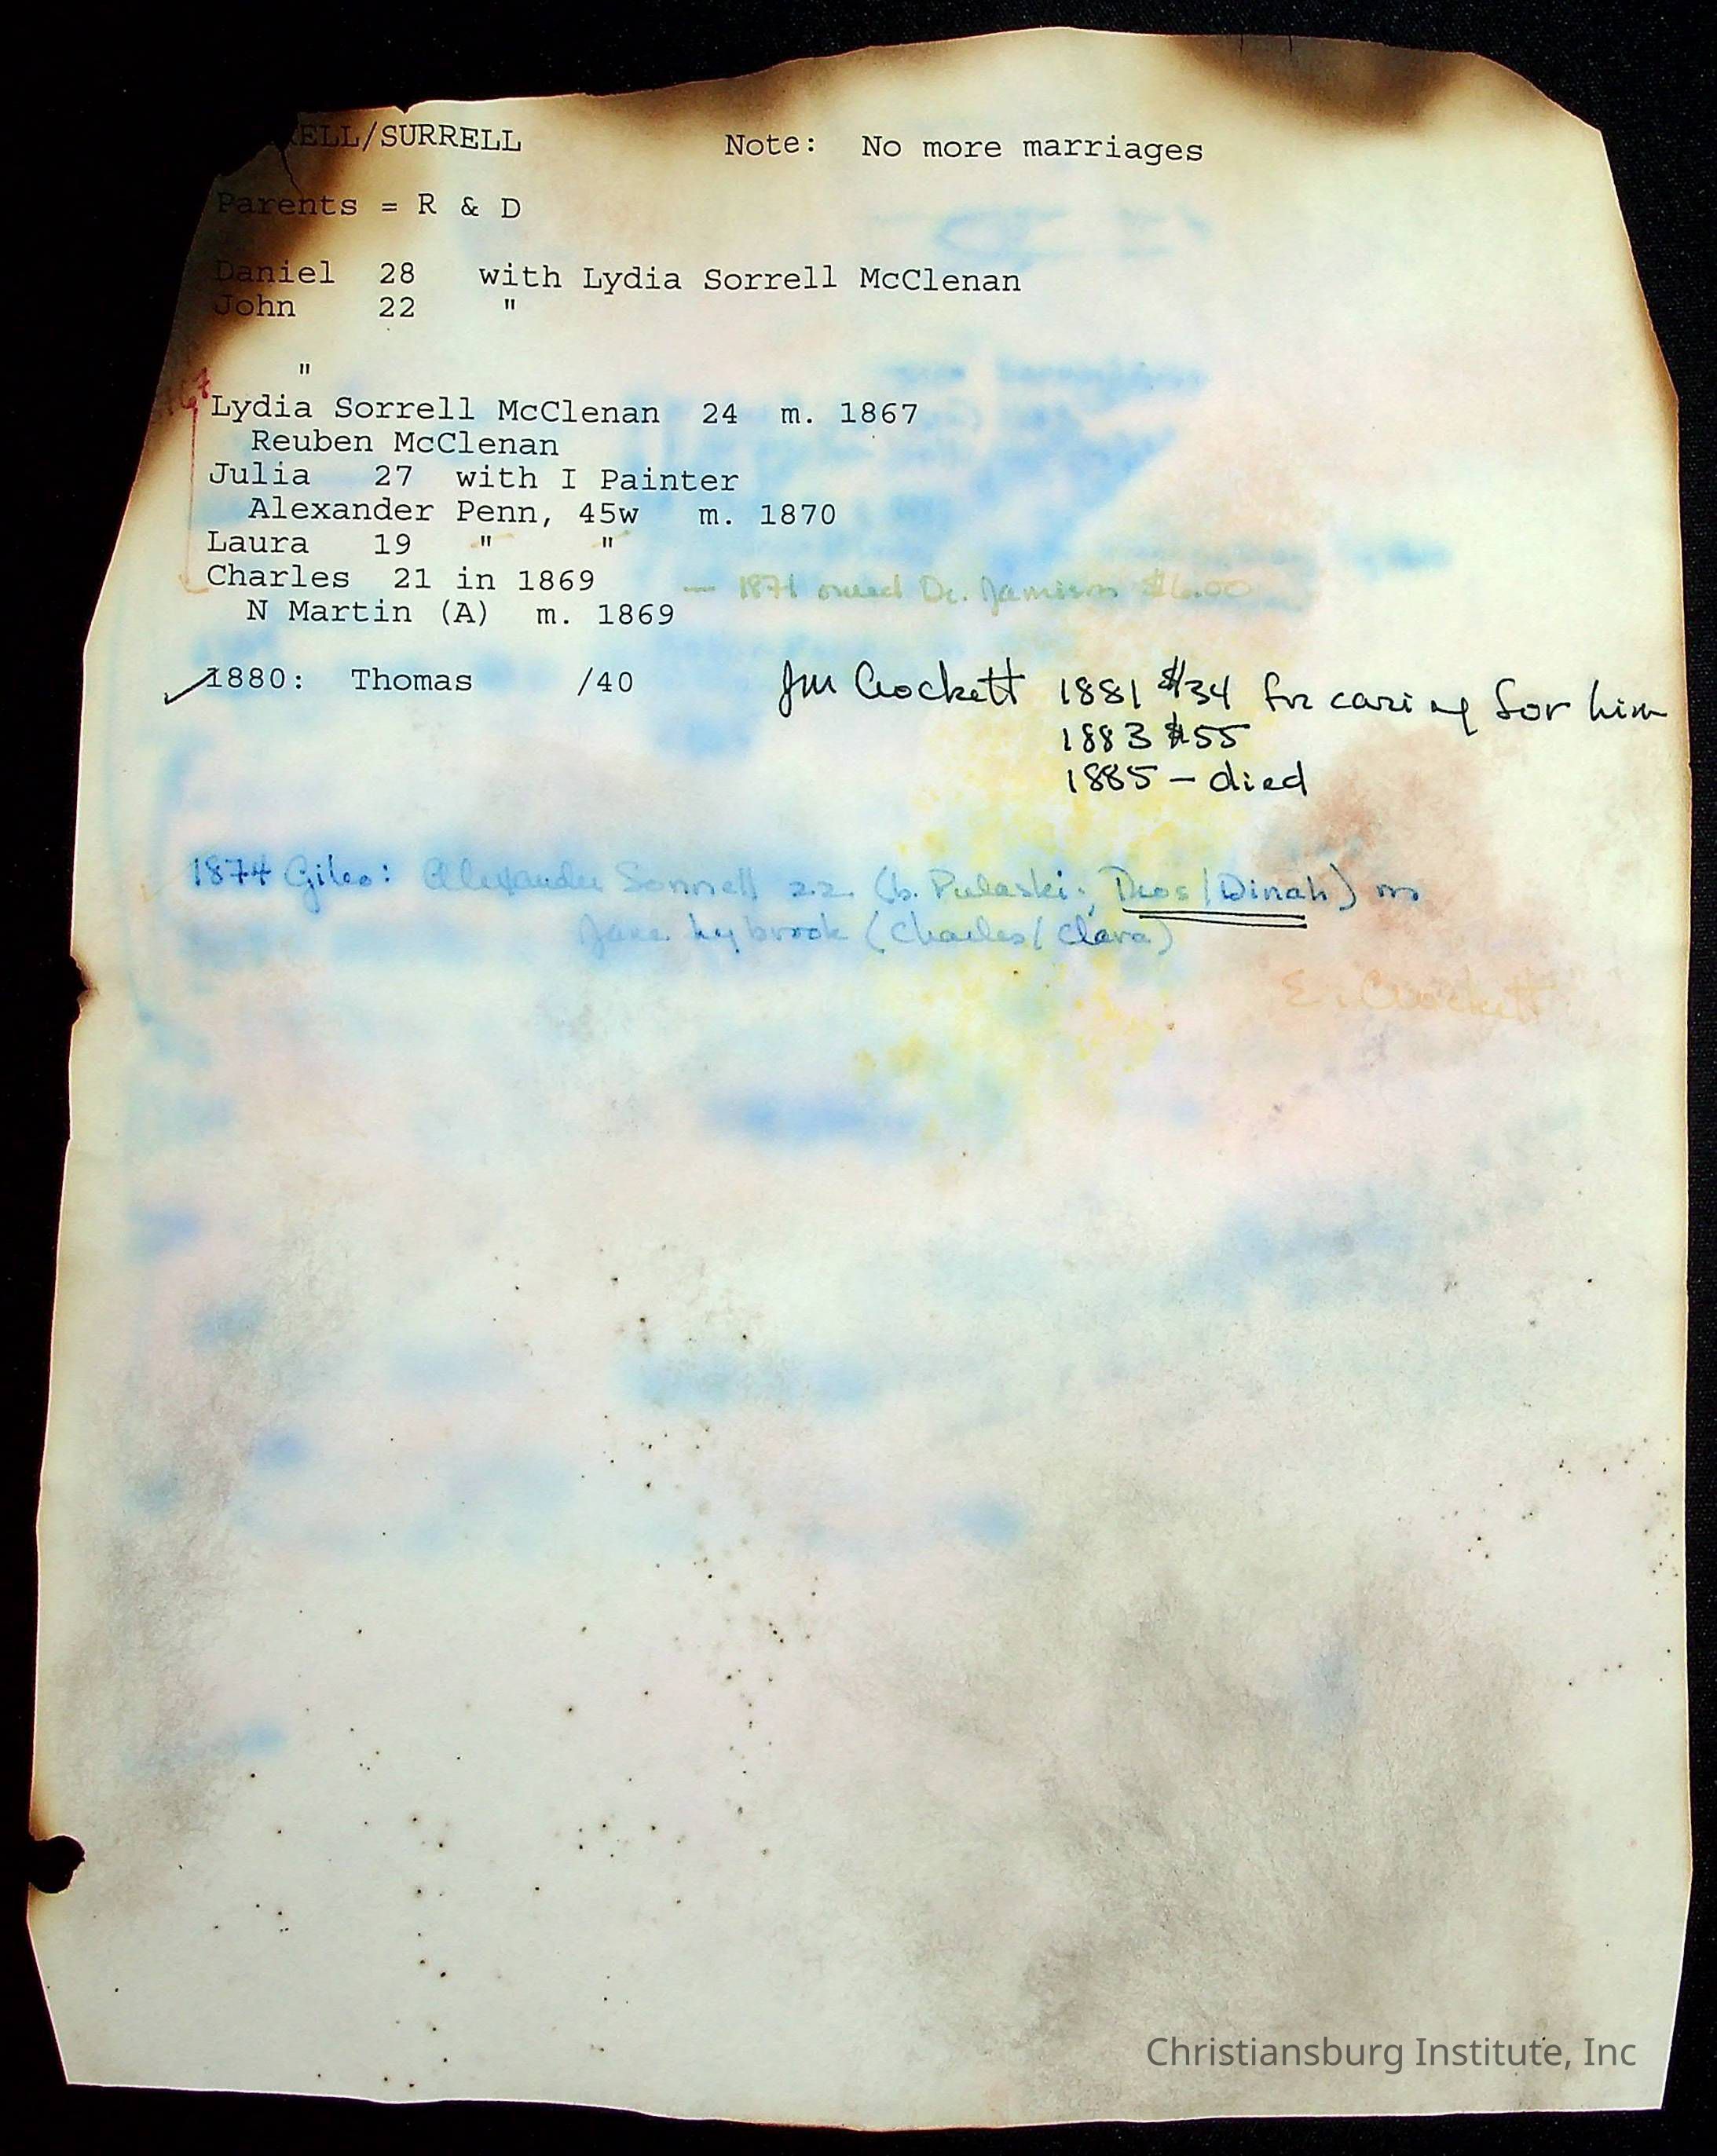 ELL/SURRELL Note: No more marriages
Parents = R & D
Daniel 28 with Lydia Sorrell McClenan
John 22 "
"
Lydia Sorrell McClenan 24 m. 1867
Reuben McClenan
Julia 27 with I Painter
Alexander Penn, 45w m. 1870
Laura 19 " "
Charles 21 in 1869 — 1871 owed Dr. Jamison $6.00
N Martin (A) m. 1869
1880: Thomas /40 Jm Crockett 1881 $34 for caring for him
1883 $55
1885 – died
1874 Giles: Alexander Sorrell 22 (b. Pulaski; /Dinah) m
Jane Lybrook (Charles/Clara)
E. Crockett
Christiansburg Institute, Inc